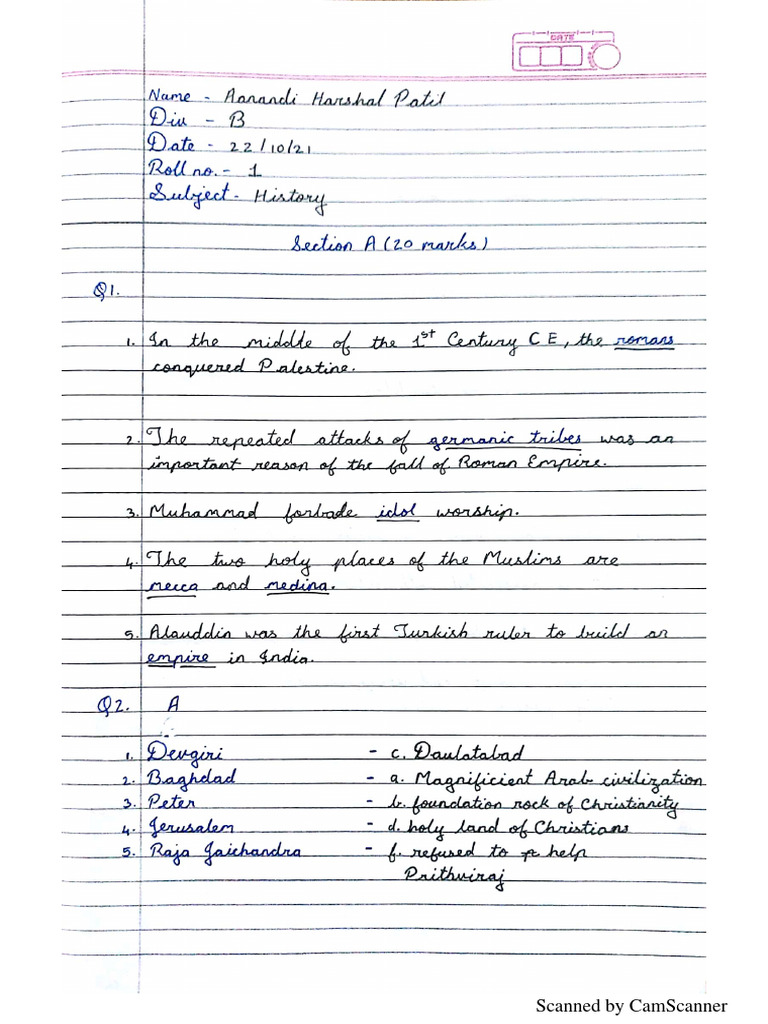 DATE
Name - Aanandi Harshal Patil
Div - B
Date - 22/10/21
Roll no. - 1
Subject - History
Section A (20 marks)
Q1.
1. In the middle of the 1st Century CE, the romans
conquered Palestine.
2. The repeated attacks of germanic tribes was an
important reason of the fall of Roman Empire.
3. Muhammad forbade idol worship.
4. The two holy places of the Muslims are
mecca and medina.
5. Alauddin was the first Turkish ruler to build an
empire in India.
Q2. A
1. Devgiri - c. Daulatabad
2. Baghdad - a. Magnificient Arab civilization
3. Peter - b. foundation rock of Christianity
4. Jerusalem - d. holy land of Christians
5. Raja Jaichandra - f. refused to help
Prithviraj
Scanned by CamScanner